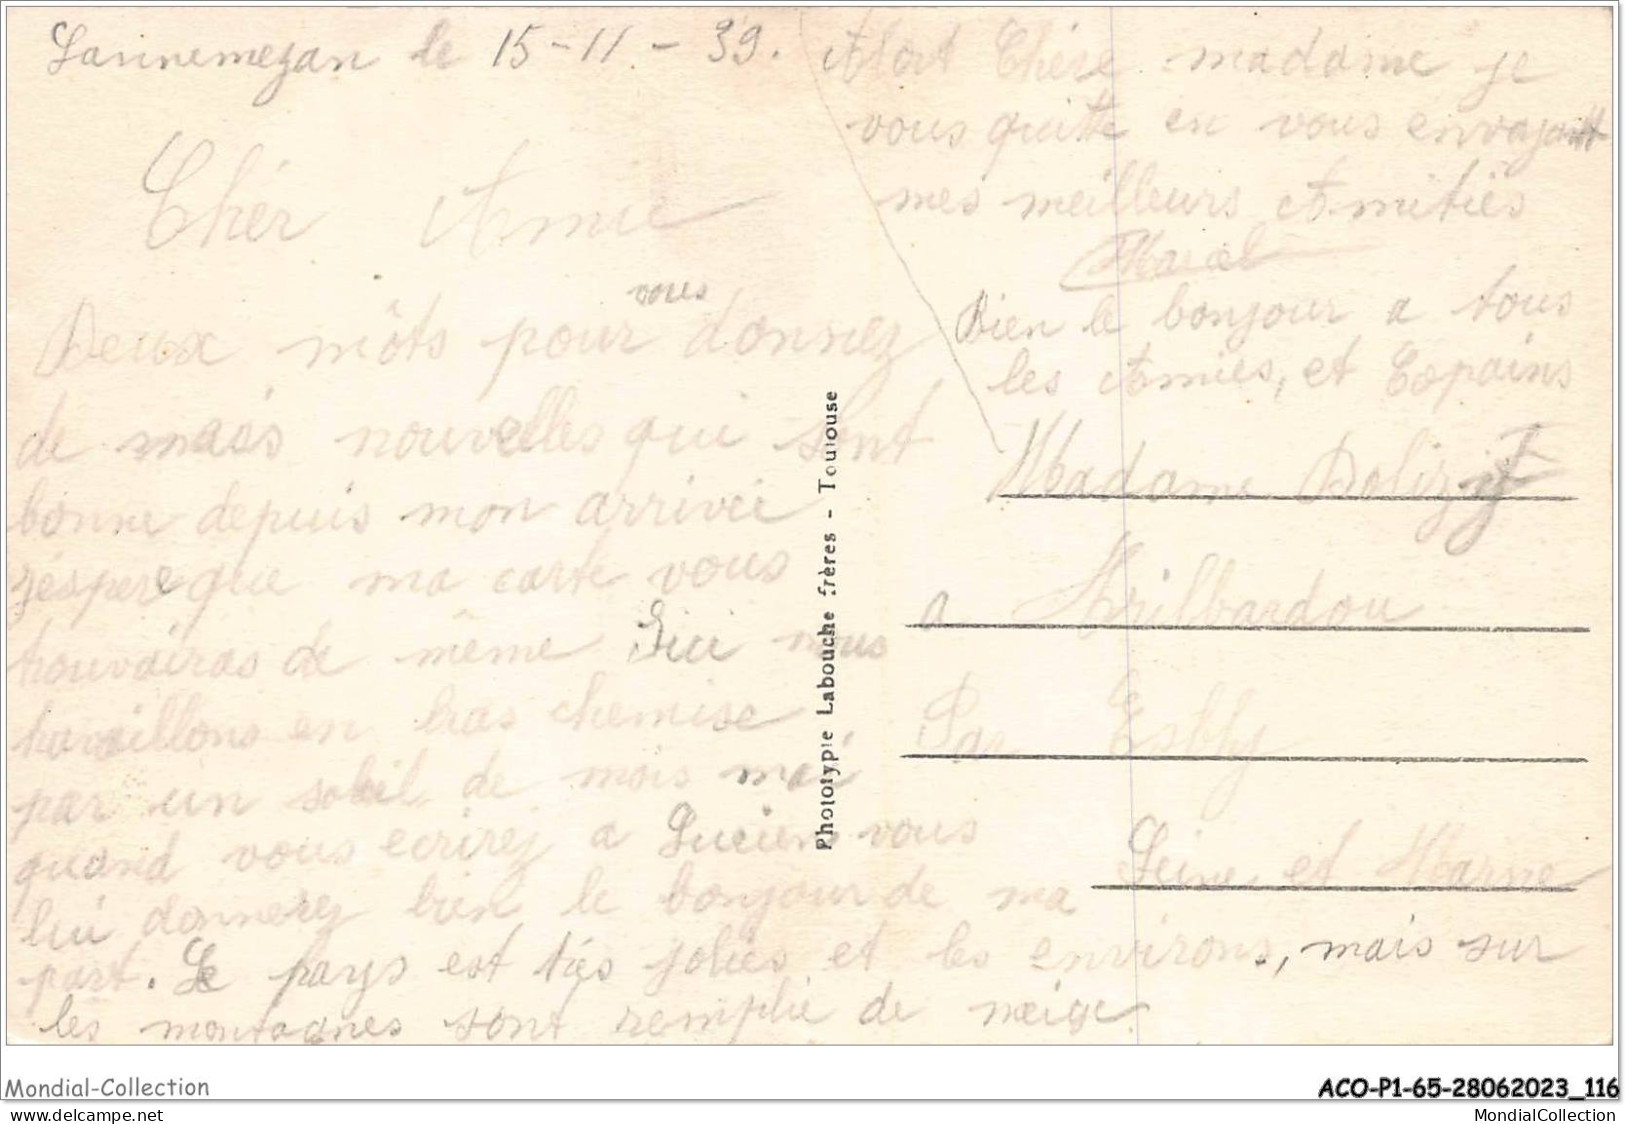 Lannemezan le 15-11-39.
Chér Amie
vous
Deux môts pour donnez
de maés nouvelles qui sont
bonne depuis mon arrivée
jéspere que ma carte vous
trouvairas de même Iici nous
travaillons en bras chemise
par un soleil de mois mai
quand vous ecrirez a Lucien vous
lui donnerez bien le bonjour de ma
part. Le pays est tiés jolies et les environs, mais sur
les montagnes sont remplie de neige.
Chére madame je
vous quitte en vous envoyant
mes meilleurs Amitiés
Marcel
Bien le bonjour a tous
les Amies, et Copains
Madame
a Trilbardou
Par Esbly
Seine et Marne
Phototypie Labouche frères - Toulouse
Mondial-Collection
ACO-P1-65-28062023_116
MondialCollection